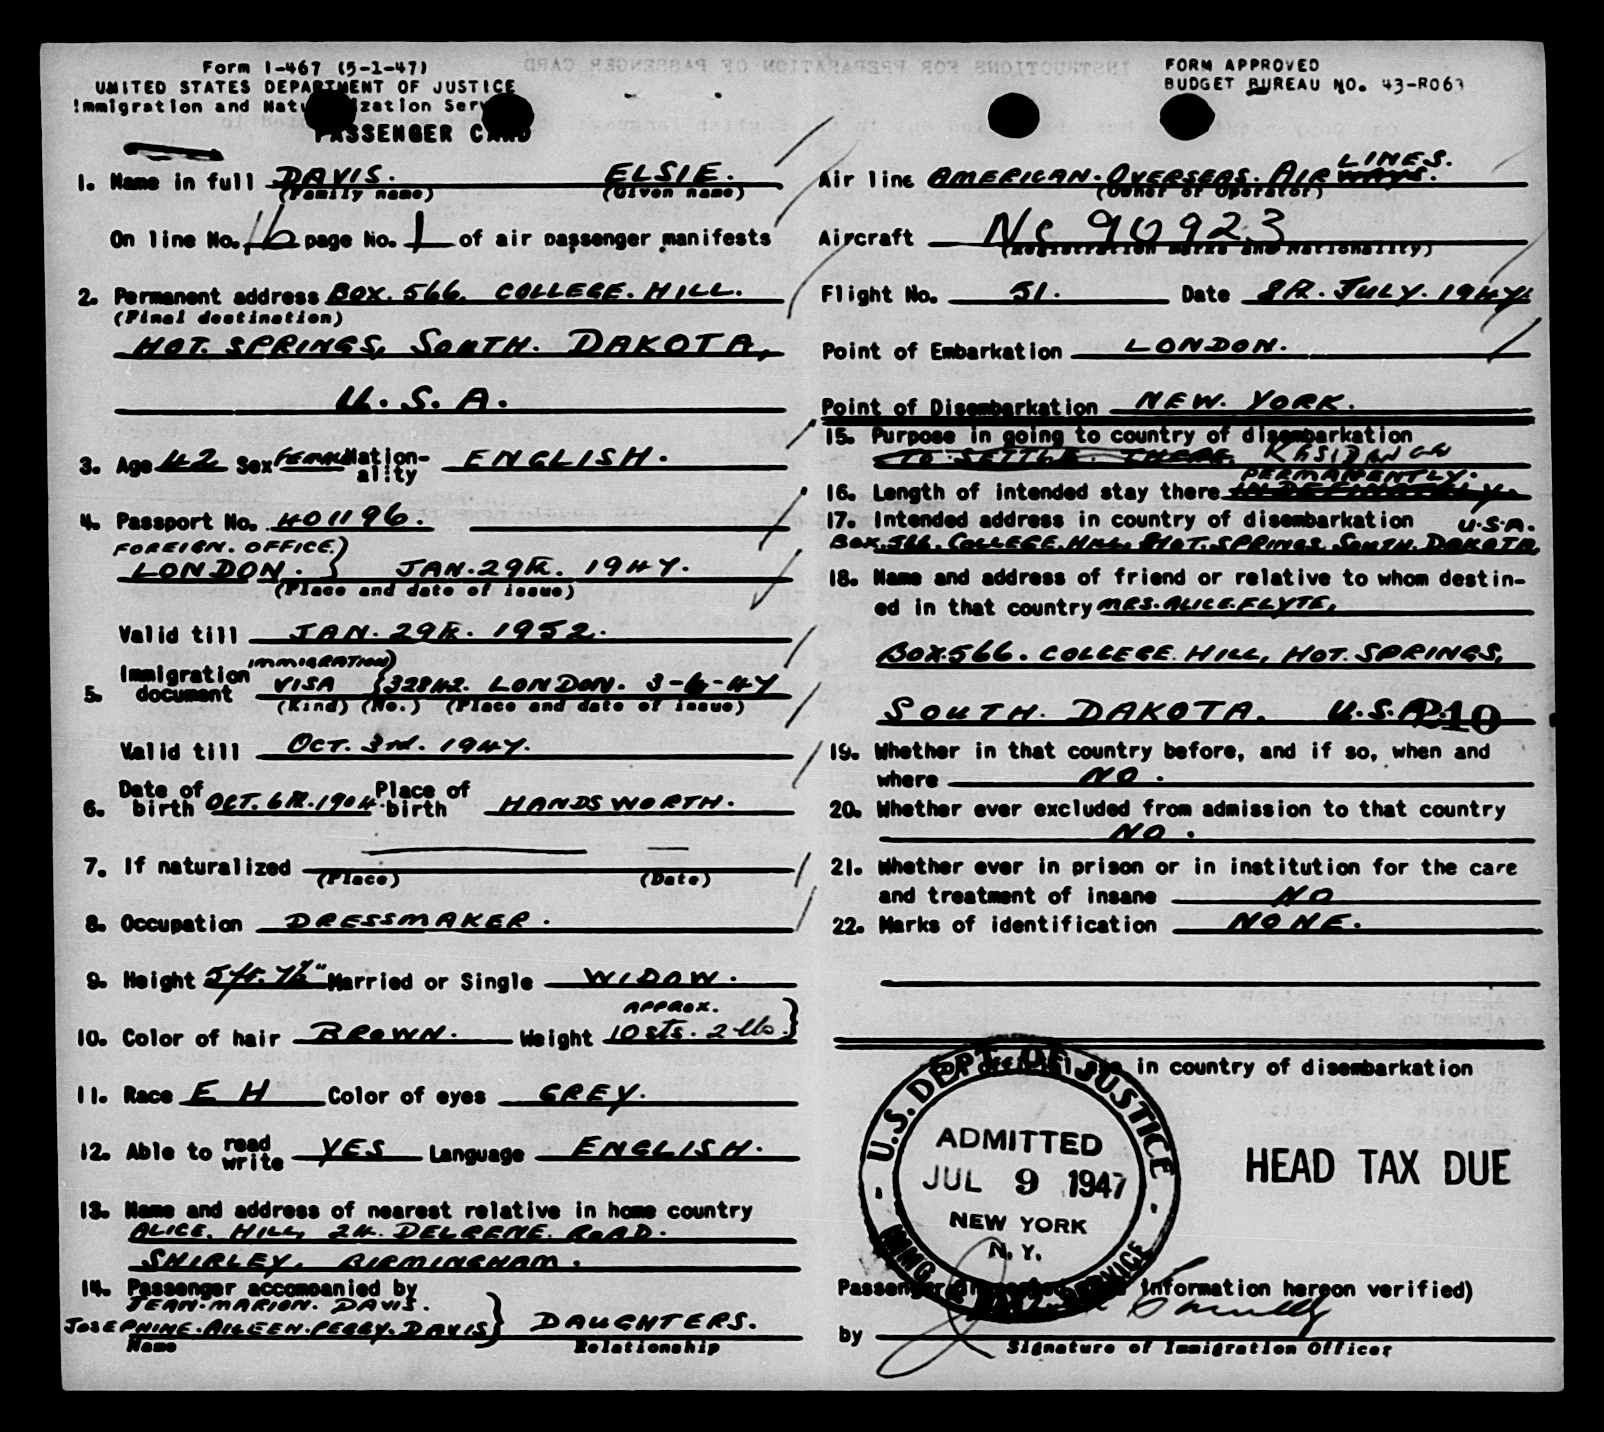 Form I-467 (5-1-47)
UNITED STATES DEPARTMENT OF JUSTICE
Immigration and Naturalization Service
PASSENGER CARD
FORM APPROVED
BUDGET BUREAU NO. 43-R063
1. Name in full DAVIS. ELSIE.
(Family name) (Given name)
On line No. 16 page No. 1 of air passenger manifests
2. Permanent address BOX. 566. COLLEGE. HILL.
(Final destination)
HOT. SPRINGS, SOUTH. DAKOTA,
U. S. A.
3. Age 42 Sex FEMALE Nation-
ality ENGLISH.
4. Passport No. 401196.
FOREIGN. OFFICE.
LONDON. } JAN. 29th. 1947.
(Place and date of issue)
Valid till JAN. 29th. 1952.
5. Immigration document IMMIGRATION VISA 32842. LONDON. 3-6-47
(Kind) (No.) (Place and date of issue)
Valid till OCT. 3rd. 1947.
6. Date of birth OCT. 6th. 1904. Place of birth HANDSWORTH.
7. If naturalized
(Place) (Date)
8. Occupation DRESSMAKER.
9. Height 5ft. 7½" Married or Single WIDOW.
APPROX.
10. Color of hair BROWN. Weight 10 sts. 2 lbs. }
11. Race E H Color of eyes GREY.
12. Able to read write YES Language ENGLISH.
13. Name and address of nearest relative in home country
ALICE. HILL, 24. DELRENE. ROAD.
SHIRLEY, BIRMINGHAM.
14. Passenger accompanied by
JEAN. MARION. DAVIS.
JOSEPHINE. AILEEN. PEGGY. DAVIS } DAUGHTERS.
Name Relationship
LINES.
Air line AMERICAN. OVERSEAS. AIR WAYS.
(Owner or Operator)
Aircraft Nc 90923
(Registration marks and nationality)
Flight No. 51. Date 8th. JULY. 1947.
Point of Embarkation LONDON.
Point of Disembarkation NEW. YORK.
15. Purpose in going to country of disembarkation
TO SETTLE. THERE. RESIDANCE
PERMANENTLY.
16. Length of intended stay there INDEFINATELY.
17. Intended address in country of disembarkation U.S.A.
BOX. 566. COLLEGE. HILL, HOT. SPRINGS, SOUTH. DAKOTA,
18. Name and address of friend or relative to whom destin-
ed in that country MRS. ALICE. FLYTE,
BOX 566. COLLEGE. HILL, HOT. SPRINGS,
SOUTH. DAKOTA. U.S.A.
19. Whether in that country before, and if so, when and
where NO.
20. Whether ever excluded from admission to that country
NO.
21. Whether ever in prison or in institution for the care
and treatment of insane NO
22. Marks of identification NONE.
in country of disembarkation
U.S. DEPT. OF JUSTICE
ADMITTED
JUL 9 1947
NEW YORK
N. Y.
IMMG. SERVICE
HEAD TAX DUE
Passenger information hereon verified)
by
Signature of Immigration Officer